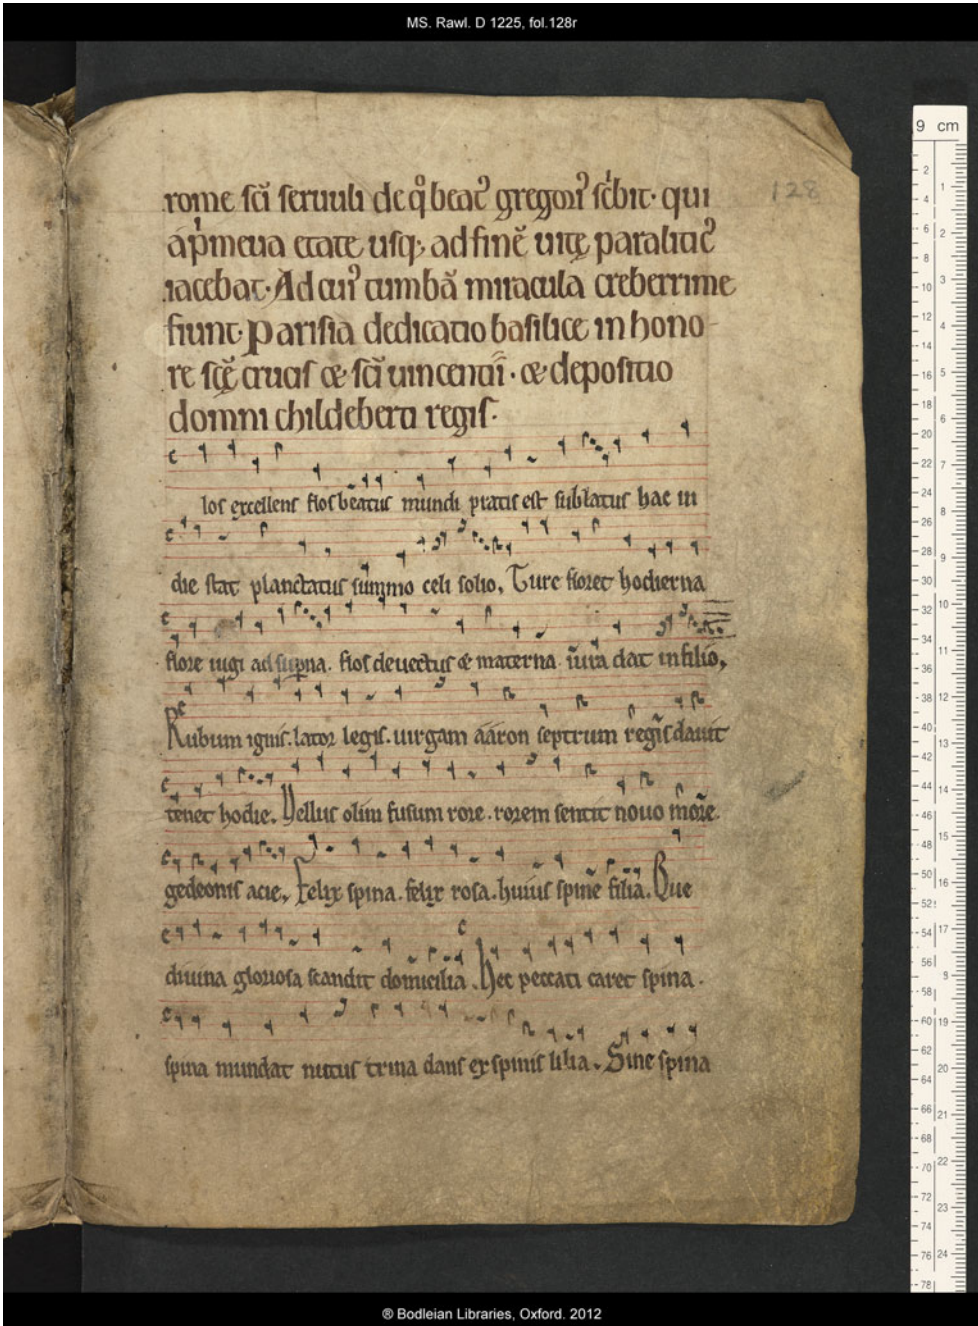 MS. Rawl. D 1225, fol.128r
128
rome sc̄i seruuli de q̊ beat᷒ gregori᷒ sc̄bit· qui
a p̍meua etate usq; ad finē uitę paralitic᷒
iacebat· Ad cui᷒ tumbā miracula creberrime
fiunt· Parisia dedicatio basilice in hono-
re scę̄ crucis & sc̄i uincentii · & depositio
domni childeberti regis·
los excellens flos beatus mundi pratis est sublatus hac in
die stat planctatus summo celi solio, Ture floret hodierna
flore iugi ad sup̱na. flos deuectus & materna iura dat in filio,
Rubum ignis. lator legis. uirgam aaron septrum regis dauit
tenet hodie. Vellus olim fusum rore. rorem sentit nouo more.
gedeonis acie, Felix spina. felix rosa. huius spine filia. Que
diuina gloriosa scandit domicilia. Hec peccati caret spina.
spina mundat nutus trina dans ex spinis lilia. Sine spina
9 cm
® Bodleian Libraries, Oxford. 2012